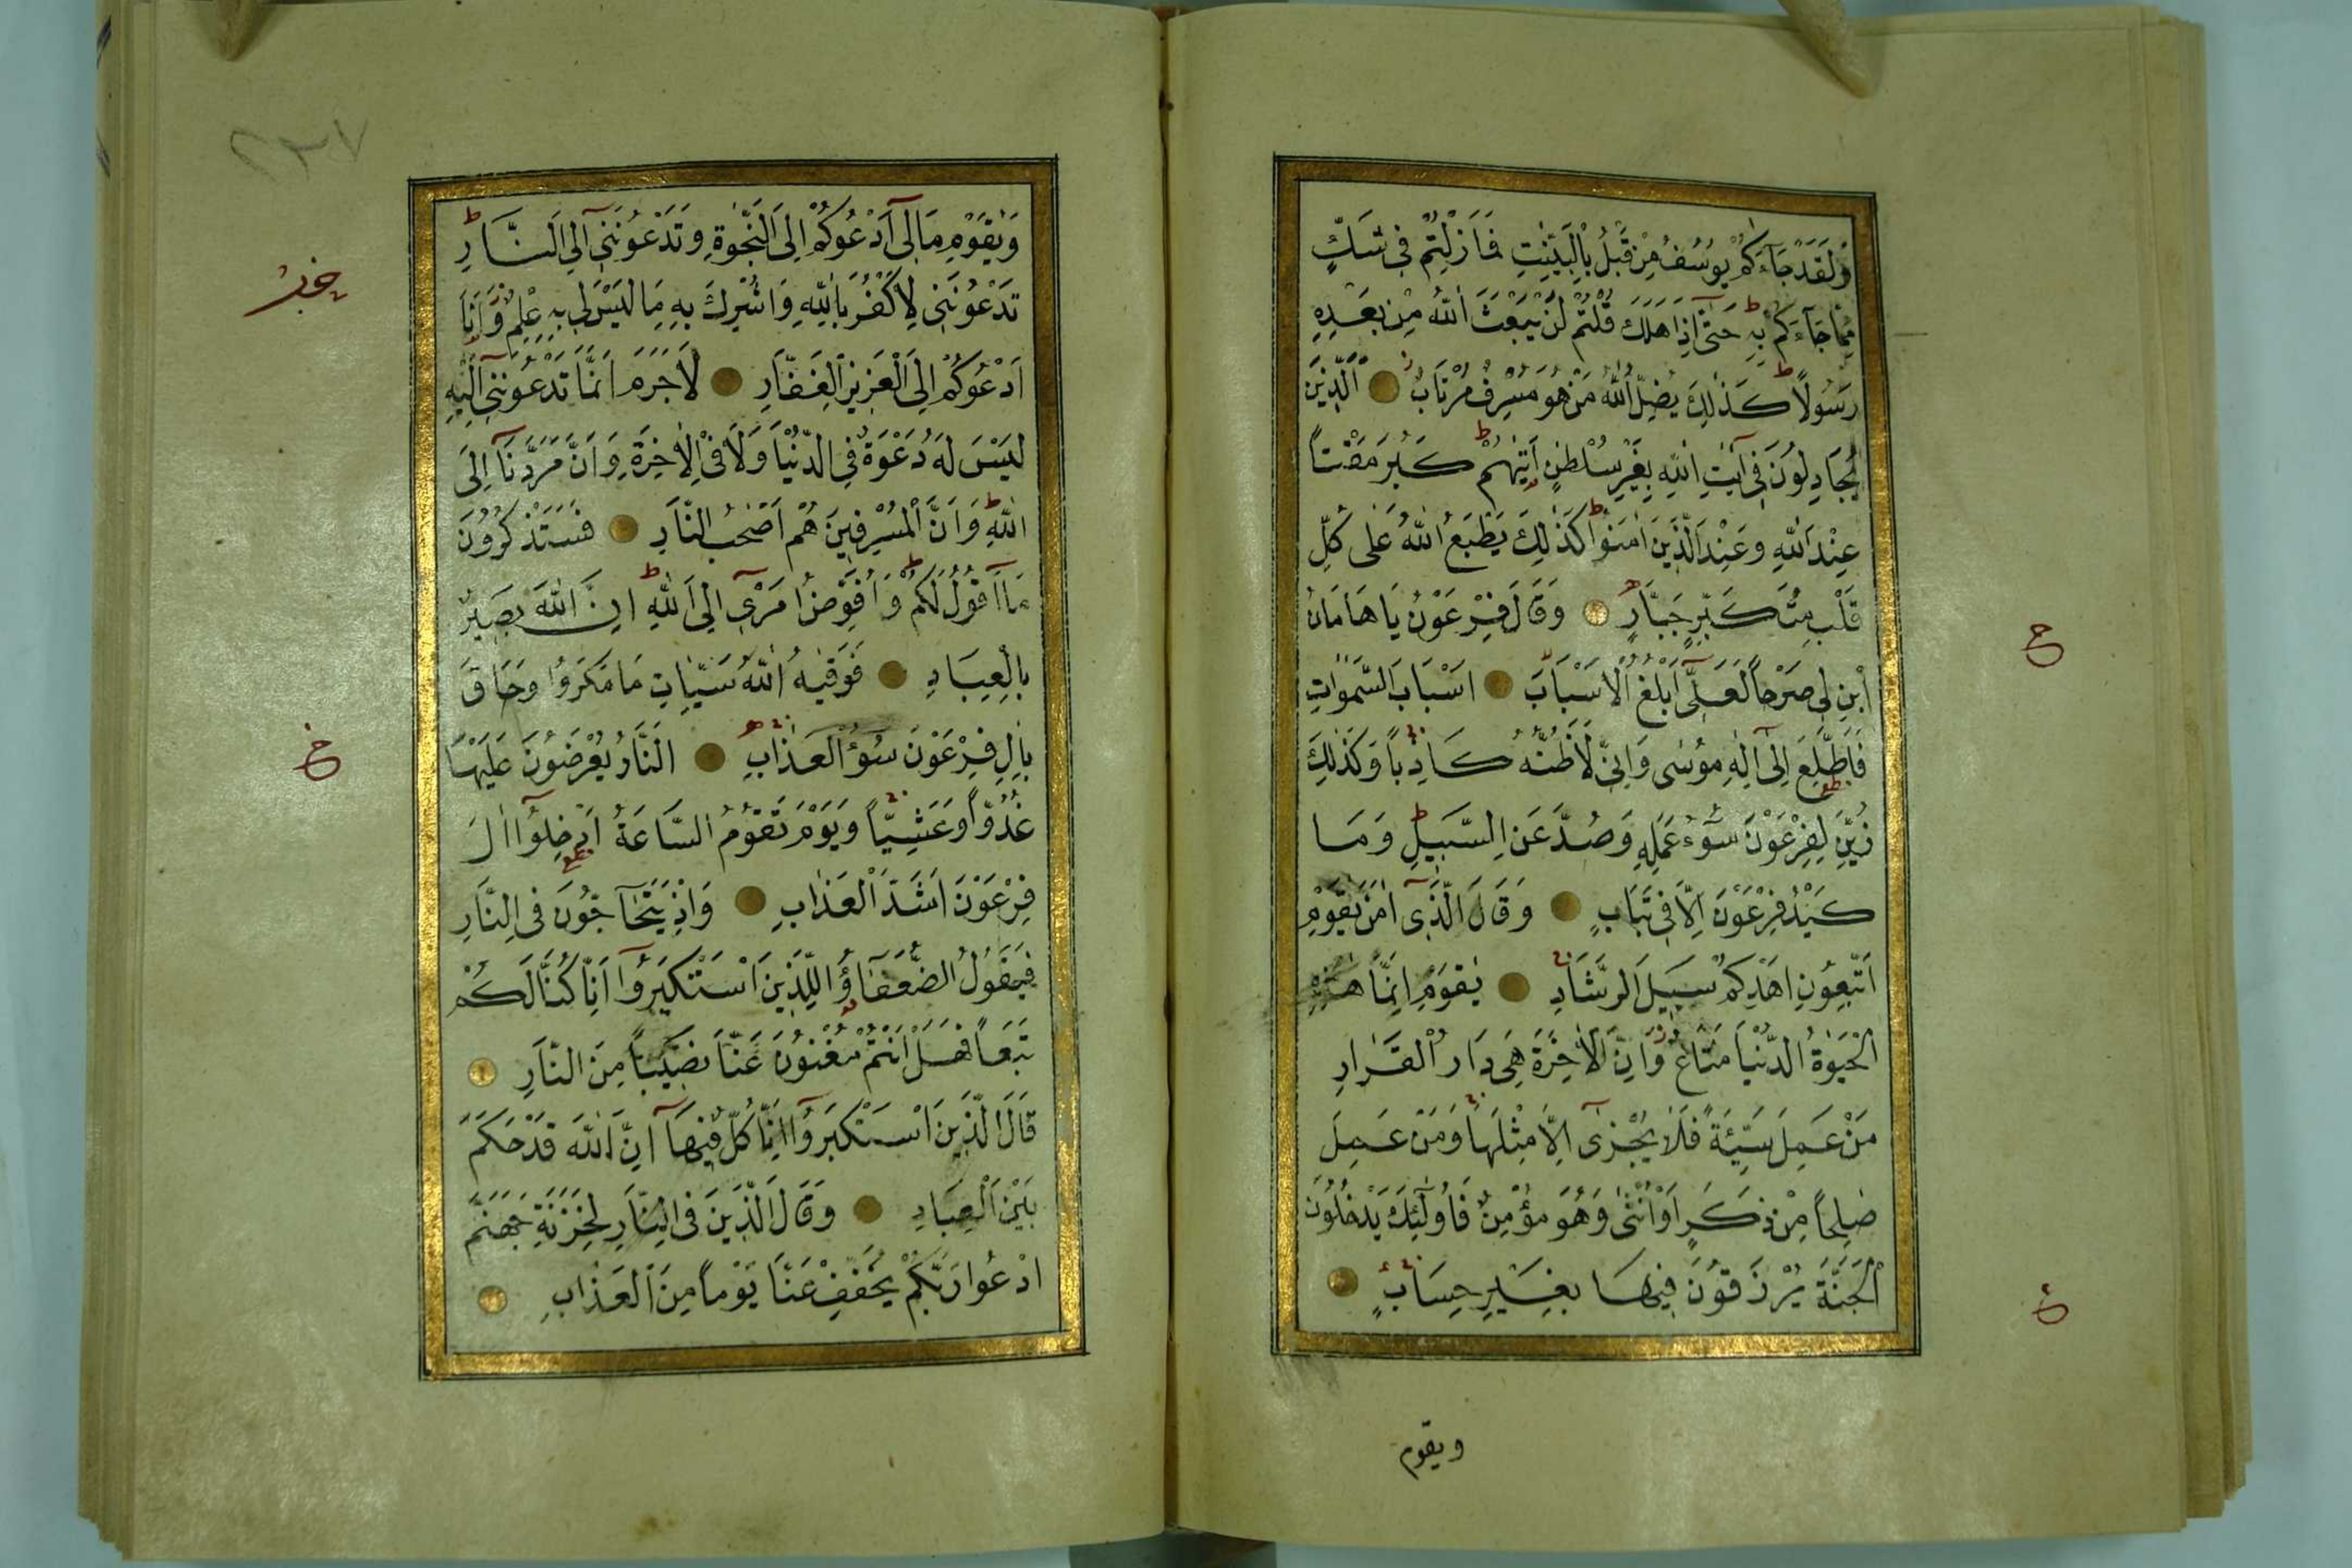 وَلَقَدْ جَاءَكُمْ يُوسُفُ مِنْ قَبْلُ بِالْبَيِّنٰتِ فَمَا زِلْتُمْ فِي شَكٍّ
مِمَّا جَآءَكُمْ بِهِ حَتّٰى اِذَا هَلَكَ قُلْتُمْ لَنْ يَبْعَثَ اللّٰهُ مِنْ بَعْدِهِ
رَسُولًا كَذٰلِكَ يُضِلُّ اللّٰهُ مَنْ هُوَ مُسْرِفٌ مُرْتَابٌ اَلَّذِينَ
يُجَادِلُونَ فِي اٰيٰتِ اللّٰهِ بِغَيْرِ سُلْطٰنٍ اَتٰيهُمْ كَبُرَ مَقْتًا
عِنْدَ اللّٰهِ وَعِنْدَ الَّذِينَ اٰمَنُوا كَذٰلِكَ يَطْبَعُ اللّٰهُ عَلٰى كُلِّ
قَلْبِ مُتَكَبِّرٍ جَبَّارٍ وَقَالَ فِرْعَوْنُ يَا هَامَانُ
ابْنِ لِي صَرْحًا لَعَلِّي اَبْلُغُ الْاَسْبَابَ اَسْبَابَ السَّمٰوَاتِ
فَاَطَّلِعَ اِلٰى اِلٰهِ مُوسٰى وَاِنِّي لَاَظُنُّهُ كَاذِبًا وَكَذٰلِكَ
زُيِّنَ لِفِرْعَوْنَ سُوٓءُ عَمَلِهِ وَصُدَّ عَنِ السَّبِيلِ وَمَا
كَيْدُ فِرْعَوْنَ اِلَّا فِي تَبَابٍ وَقَالَ الَّذِي اٰمَنَ يٰقَوْمِ
اتَّبِعُونِ اَهْدِكُمْ سَبِيلَ الرَّشَادِ يٰقَوْمِ اِنَّمَا هٰذِهِ
الْحَيٰوةُ الدُّنْيَا مَتَاعٌ وَاِنَّ الْاٰخِرَةَ هِيَ دَارُ الْقَرَارِ
مَنْ عَمِلَ سَيِّئَةً فَلَا يُجْزٰى اِلَّا مِثْلَهَا وَمَنْ عَمِلَ
صٰلِحًا مِنْ ذَكَرٍ اَوْ اُنْثٰى وَهُوَ مُؤْمِنٌ فَاُولٰئِكَ يَدْخُلُونَ
الْجَنَّةَ يُرْزَقُونَ فِيهَا بِغَيْرِ حِسَابٍ
ويقوم
٢٣٧
وَيٰقَوْمِ مَا لِي اَدْعُوكُمْ اِلَى النَّجٰوةِ وَتَدْعُونَنِي اِلَى النَّارِ
تَدْعُونَنِي لِاَكْفُرَ بِاللّٰهِ وَاُشْرِكَ بِهِ مَا لَيْسَ لِي بِهِ عِلْمٌ وَاَنَا
اَدْعُوكُمْ اِلَى الْعَزِيزِ الْغَفَّارِ لَا جَرَمَ اَنَّمَا تَدْعُونَنِي اِلَيْهِ
لَيْسَ لَهُ دَعْوَةٌ فِي الدُّنْيَا وَلَا فِي الْاٰخِرَةِ وَاَنَّ مَرَدَّنَا اِلَى
اللّٰهِ وَاَنَّ الْمُسْرِفِينَ هُمْ اَصْحٰبُ النَّارِ فَسَتَذْكُرُونَ
مَا اَقُولُ لَكُمْ وَاُفَوِّضُ اَمْرِي اِلَى اللّٰهِ اِنَّ اللّٰهَ بَصِيرٌ
بِالْعِبَادِ فَوَقٰيهُ اللّٰهُ سَيِّاٰتِ مَا مَكَرُوا وَحَاقَ
بِاٰلِ فِرْعَوْنَ سُوٓءُ الْعَذَابِ اَلنَّارُ يُعْرَضُونَ عَلَيْهَا
غُدُوًّا وَعَشِيًّا وَيَوْمَ تَقُومُ السَّاعَةُ اَدْخِلُوا اٰلَ
فِرْعَوْنَ اَشَدَّ الْعَذَابِ وَاِذْ يَتَحَآجُّونَ فِي النَّارِ
فَيَقُولُ الضُّعَفَاؤُا لِلَّذِينَ اسْتَكْبَرُوا اِنَّا كُنَّا لَكُمْ
تَبَعًا فَهَلْ اَنْتُمْ مُغْنُونَ عَنَّا نَصِيبًا مِنَ النَّارِ
قَالَ الَّذِينَ اسْتَكْبَرُوا اِنَّا كُلٌّ فِيهَا اِنَّ اللّٰهَ قَدْ حَكَمَ
بَيْنَ الْعِبَادِ وَقَالَ الَّذِينَ فِي النَّارِ لِخَزَنَةِ جَهَنَّمَ
ادْعُوا رَبَّكُمْ يُخَفِّفْ عَنَّا يَوْمًا مِنَ الْعَذَابِ